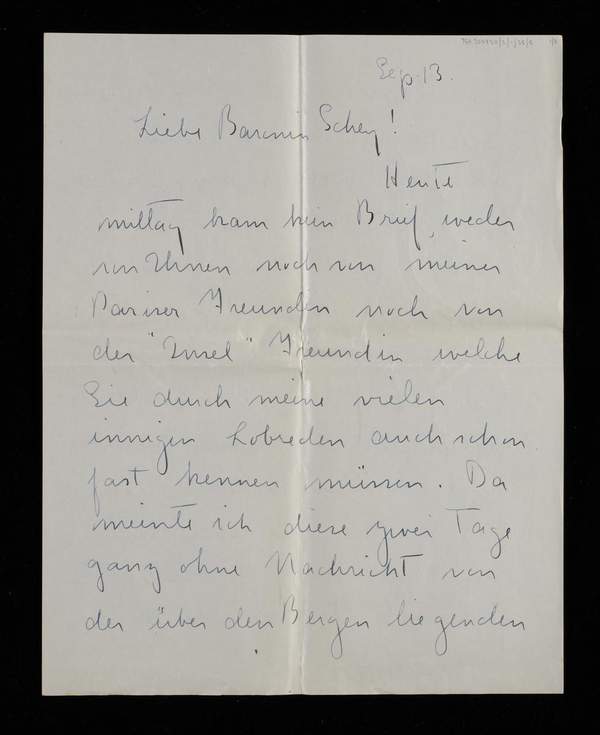 Sep. 13.
Liebe Baronin Schey!
Heute
mittag kam kein Brief, weder
von Ihnen noch von meinen
Pariser Freunden noch von
der "Insel" Freundin welche
Sie durch meine vielen
innigen Lobreden auch schon
fast kennen müssen. Da
meinte ich diese zwei Tage
ganz ohne Nachricht von
der über den Bergen liegenden